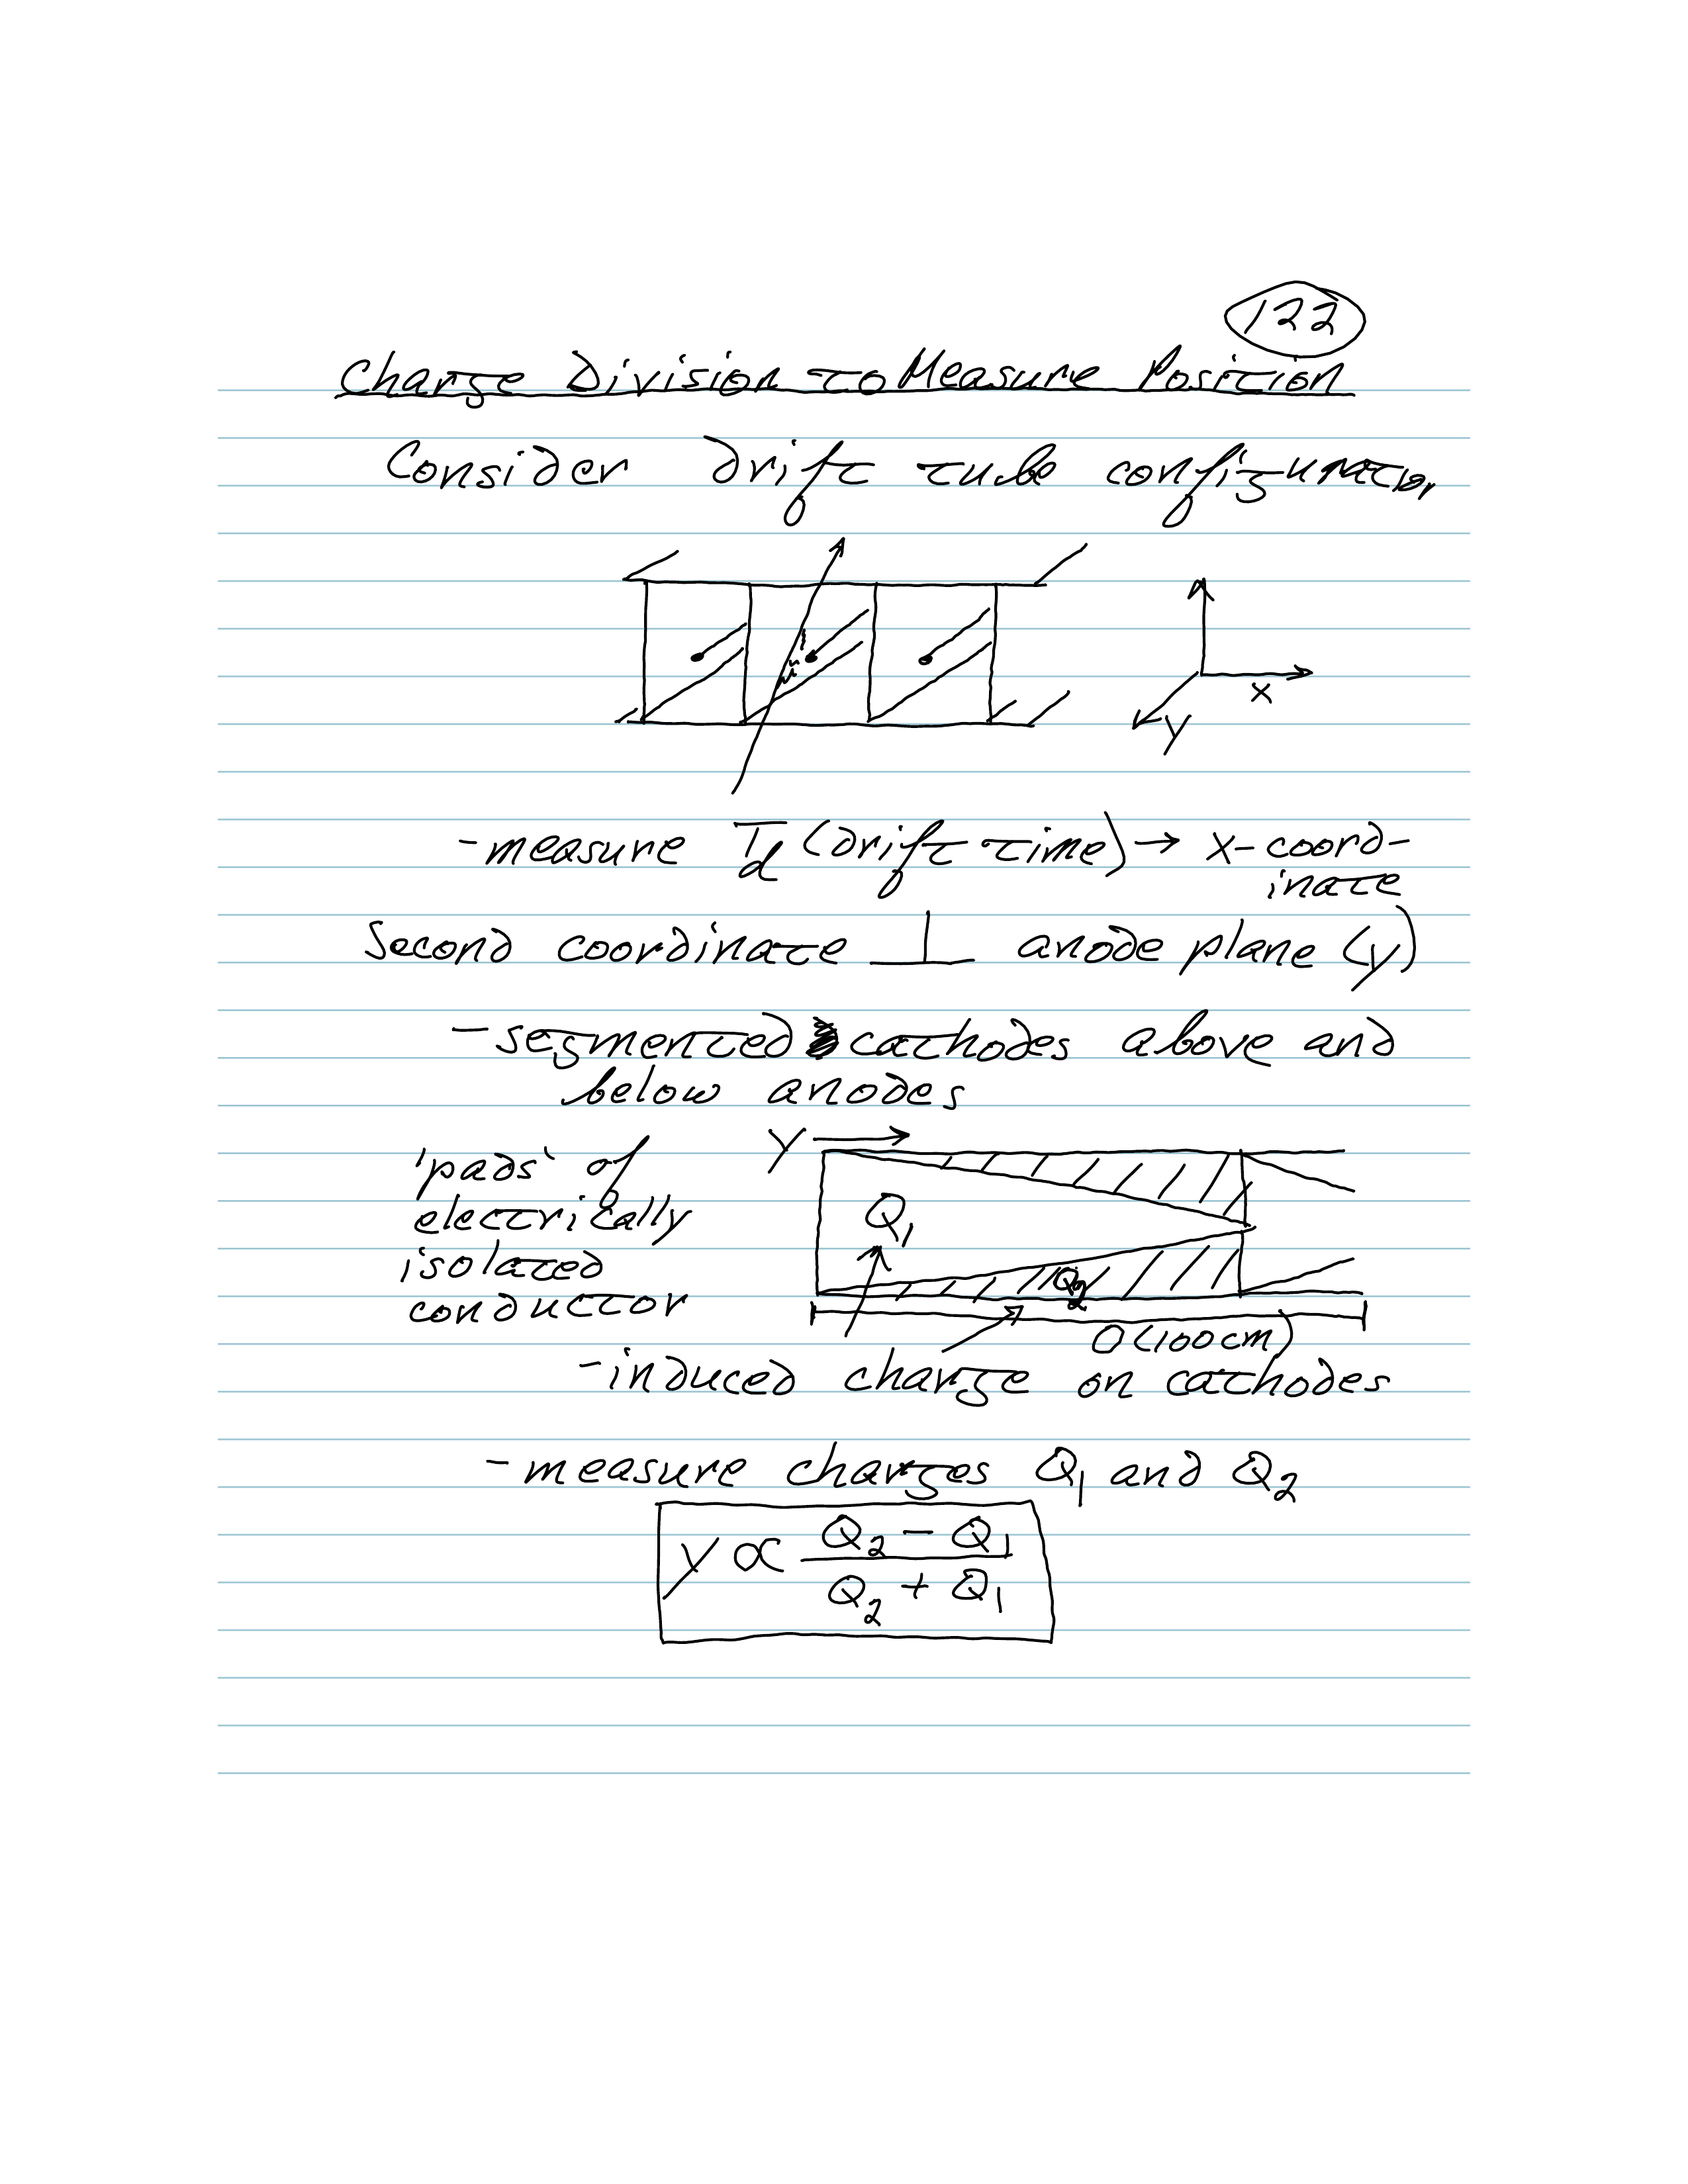 122
Charge Division to Measure Position
Consider drift tube configuration
x
y
-measure T_d (drift time) → x-coord-
inate
Second coordinate ⊥ anode plane (y)
-segmented cathodes above and
below anodes
Y →
'pads' of
electrically
isolated
conductor
Q_1
Q_2
O(100cm)
-induced charge on cathodes
-measure charges Q_1 and Q_2
y ∝ (Q_2 - Q_1) / (Q_2 + Q_1)